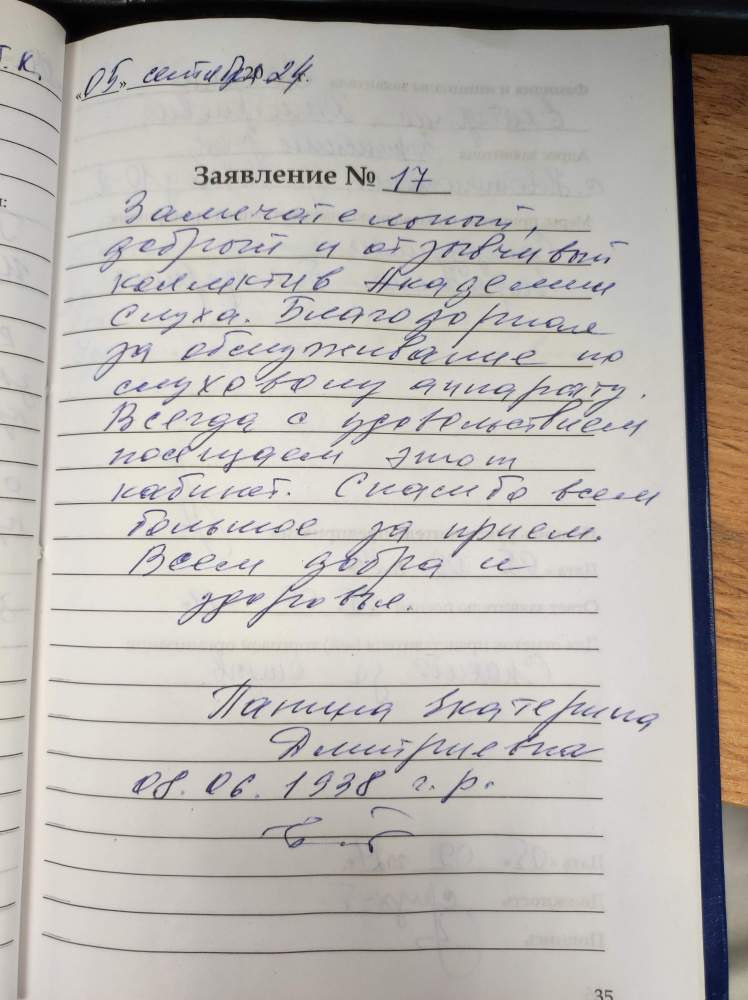 Т. К.
«05» сентября 24г.
Заявление № 17
Замечательный,
добрый и отзывчивый
коллектив Академии
слуха. Благодарная
за обслуживание по
слуховому аппарату.
Всегда с удовольствием
посещаем этот
кабинет. Спасибо всем
большое за прием.
Всем добра и
здоровья.
Панина Екатерина
Дмитриевна
08.06.1938 г.р.
35